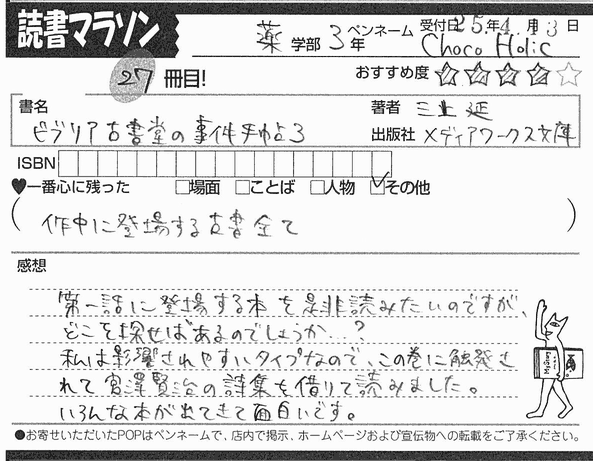 読書マラソン
薬 学部 3年 ペンネーム Choco Holic 受付日 25年4月13日
27 冊目!
おすすめ度 ★★★★☆
書名 ビブリア古書堂の事件手帖3
著者 三上 延
出版社 メディアワークス文庫
ISBN
♥一番心に残った □場面 □ことば □人物 ☑その他
(作中に登場する古書全て)
感想
第一話に登場する本を是非読みたいのですが、
どこを探せばあるのでしょうか…?
私は影響されやすいタイプなので、この巻に触発さ
れて宮澤賢治の詩集を借りて読みました。
いろんな本が出てきて面白いです。
●お寄せいただいたPOPはペンネームで、店内で掲示、ホームページおよび宣伝物への転載をご了承ください。